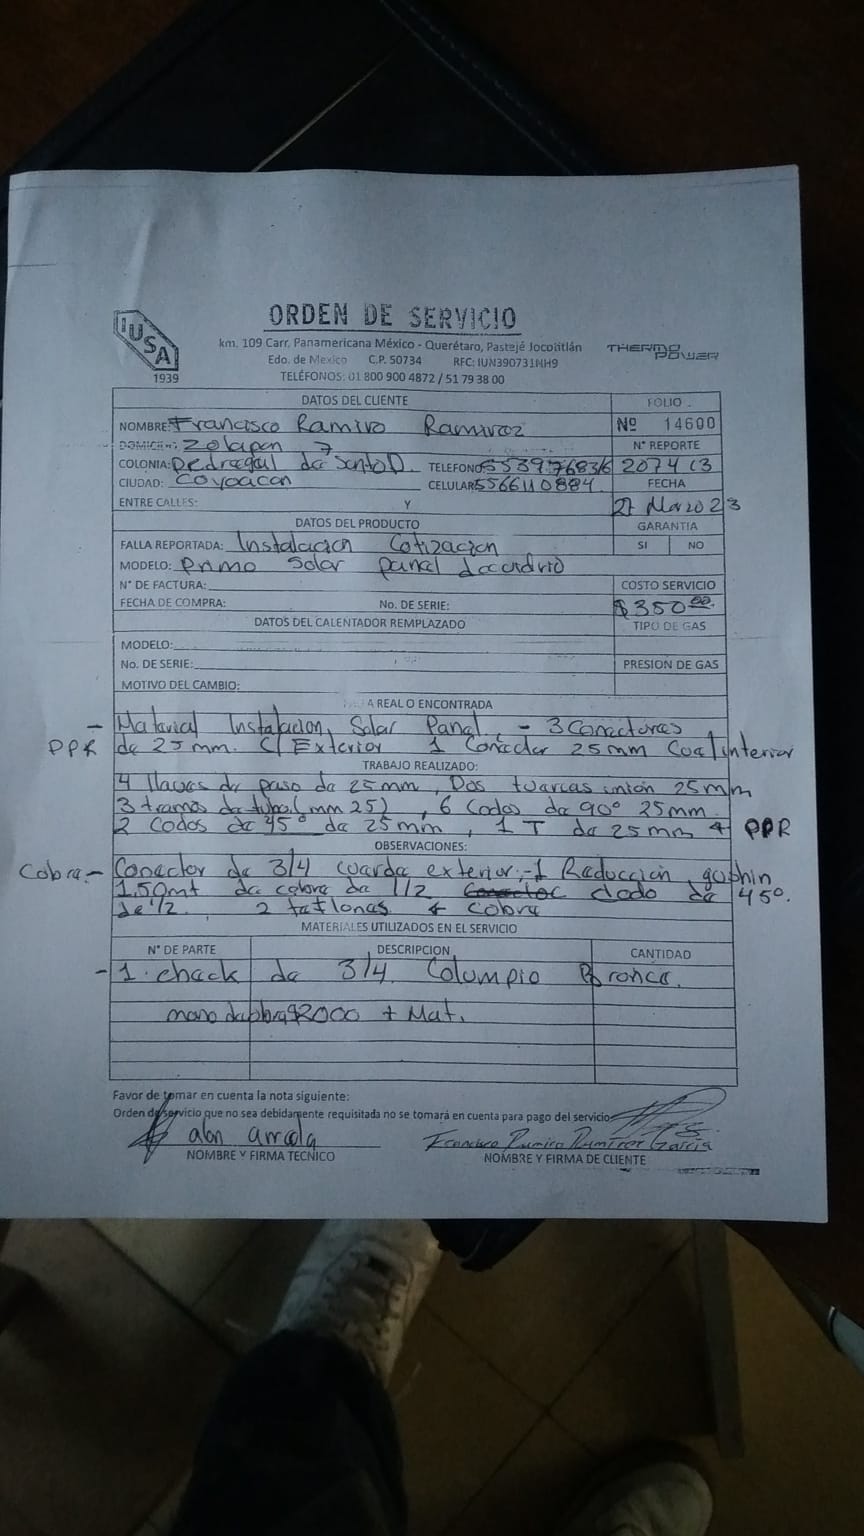 ORDEN DE SERVICIO
IUSA
1939
km. 109 Carr. Panamericana México - Querétaro, Pastejé Jocotitlán
Edo. de Mexico C.P. 50734 RFC: IUN390731NH9
TELÉFONOS: 01 800 900 4872 / 51 79 38 00
THERMO POWER
DATOS DEL CLIENTE
FOLIO
NOMBRE: Francisco Ramiro Ramiraz
Nº 14600
DOMICILIO: Zolapan 7
N° REPORTE
COLONIA: Pedregal de Santo D. TELEFONO: 5539768316
2074 13
CIUDAD: Coyoacan CELULAR: 5566110884
FECHA
ENTRE CALLES: Y
27 Marzo 23
DATOS DEL PRODUCTO
GARANTIA
FALLA REPORTADA: Instalacion Cotizacion
SI NO
MODELO: Primo Solar panel
N° DE FACTURA:
COSTO SERVICIO
FECHA DE COMPRA: No. DE SERIE:
$350.00
DATOS DEL CALENTADOR REMPLAZADO
TIPO DE GAS
MODELO:
No. DE SERIE:
PRESION DE GAS
MOTIVO DEL CAMBIO:
A REAL O ENCONTRADA
- Material Instalacion, Solar Panel, - 3 Conectores
PPR de 25 mm. C/ Exterior 1 Conector 25mm Cua/interior
TRABAJO REALIZADO:
4 llaves de paso de 25mm, Dos tuarcas unión 25mm
3 tramos de tubo (mm 25), 6 Codos de 90° 25mm
2 Codos de 45° de 25mm, 1 T de 25mm PPR
OBSERVACIONES:
Cobra.- Conector de 3/4 cuarda exterior,-1 Reduccion, gushin
1.50mt de cobra de 1/2 codo de 45°.
de 1/2. 2 taflonas cobra
MATERIALES UTILIZADOS EN EL SERVICIO
N° DE PARTE DESCRIPCION CANTIDAD
- 1. chack de 3/4. Columpio Bronca.
mano de obra $2000 + Mat.
Favor de tomar en cuenta la nota siguiente:
Orden de servicio que no sea debidamente requisitada no se tomará en cuenta para pago del servicio
alan arreola
Francisco Ramiro Ramirez Garcia
NOMBRE Y FIRMA TECNICO
NOMBRE Y FIRMA DE CLIENTE